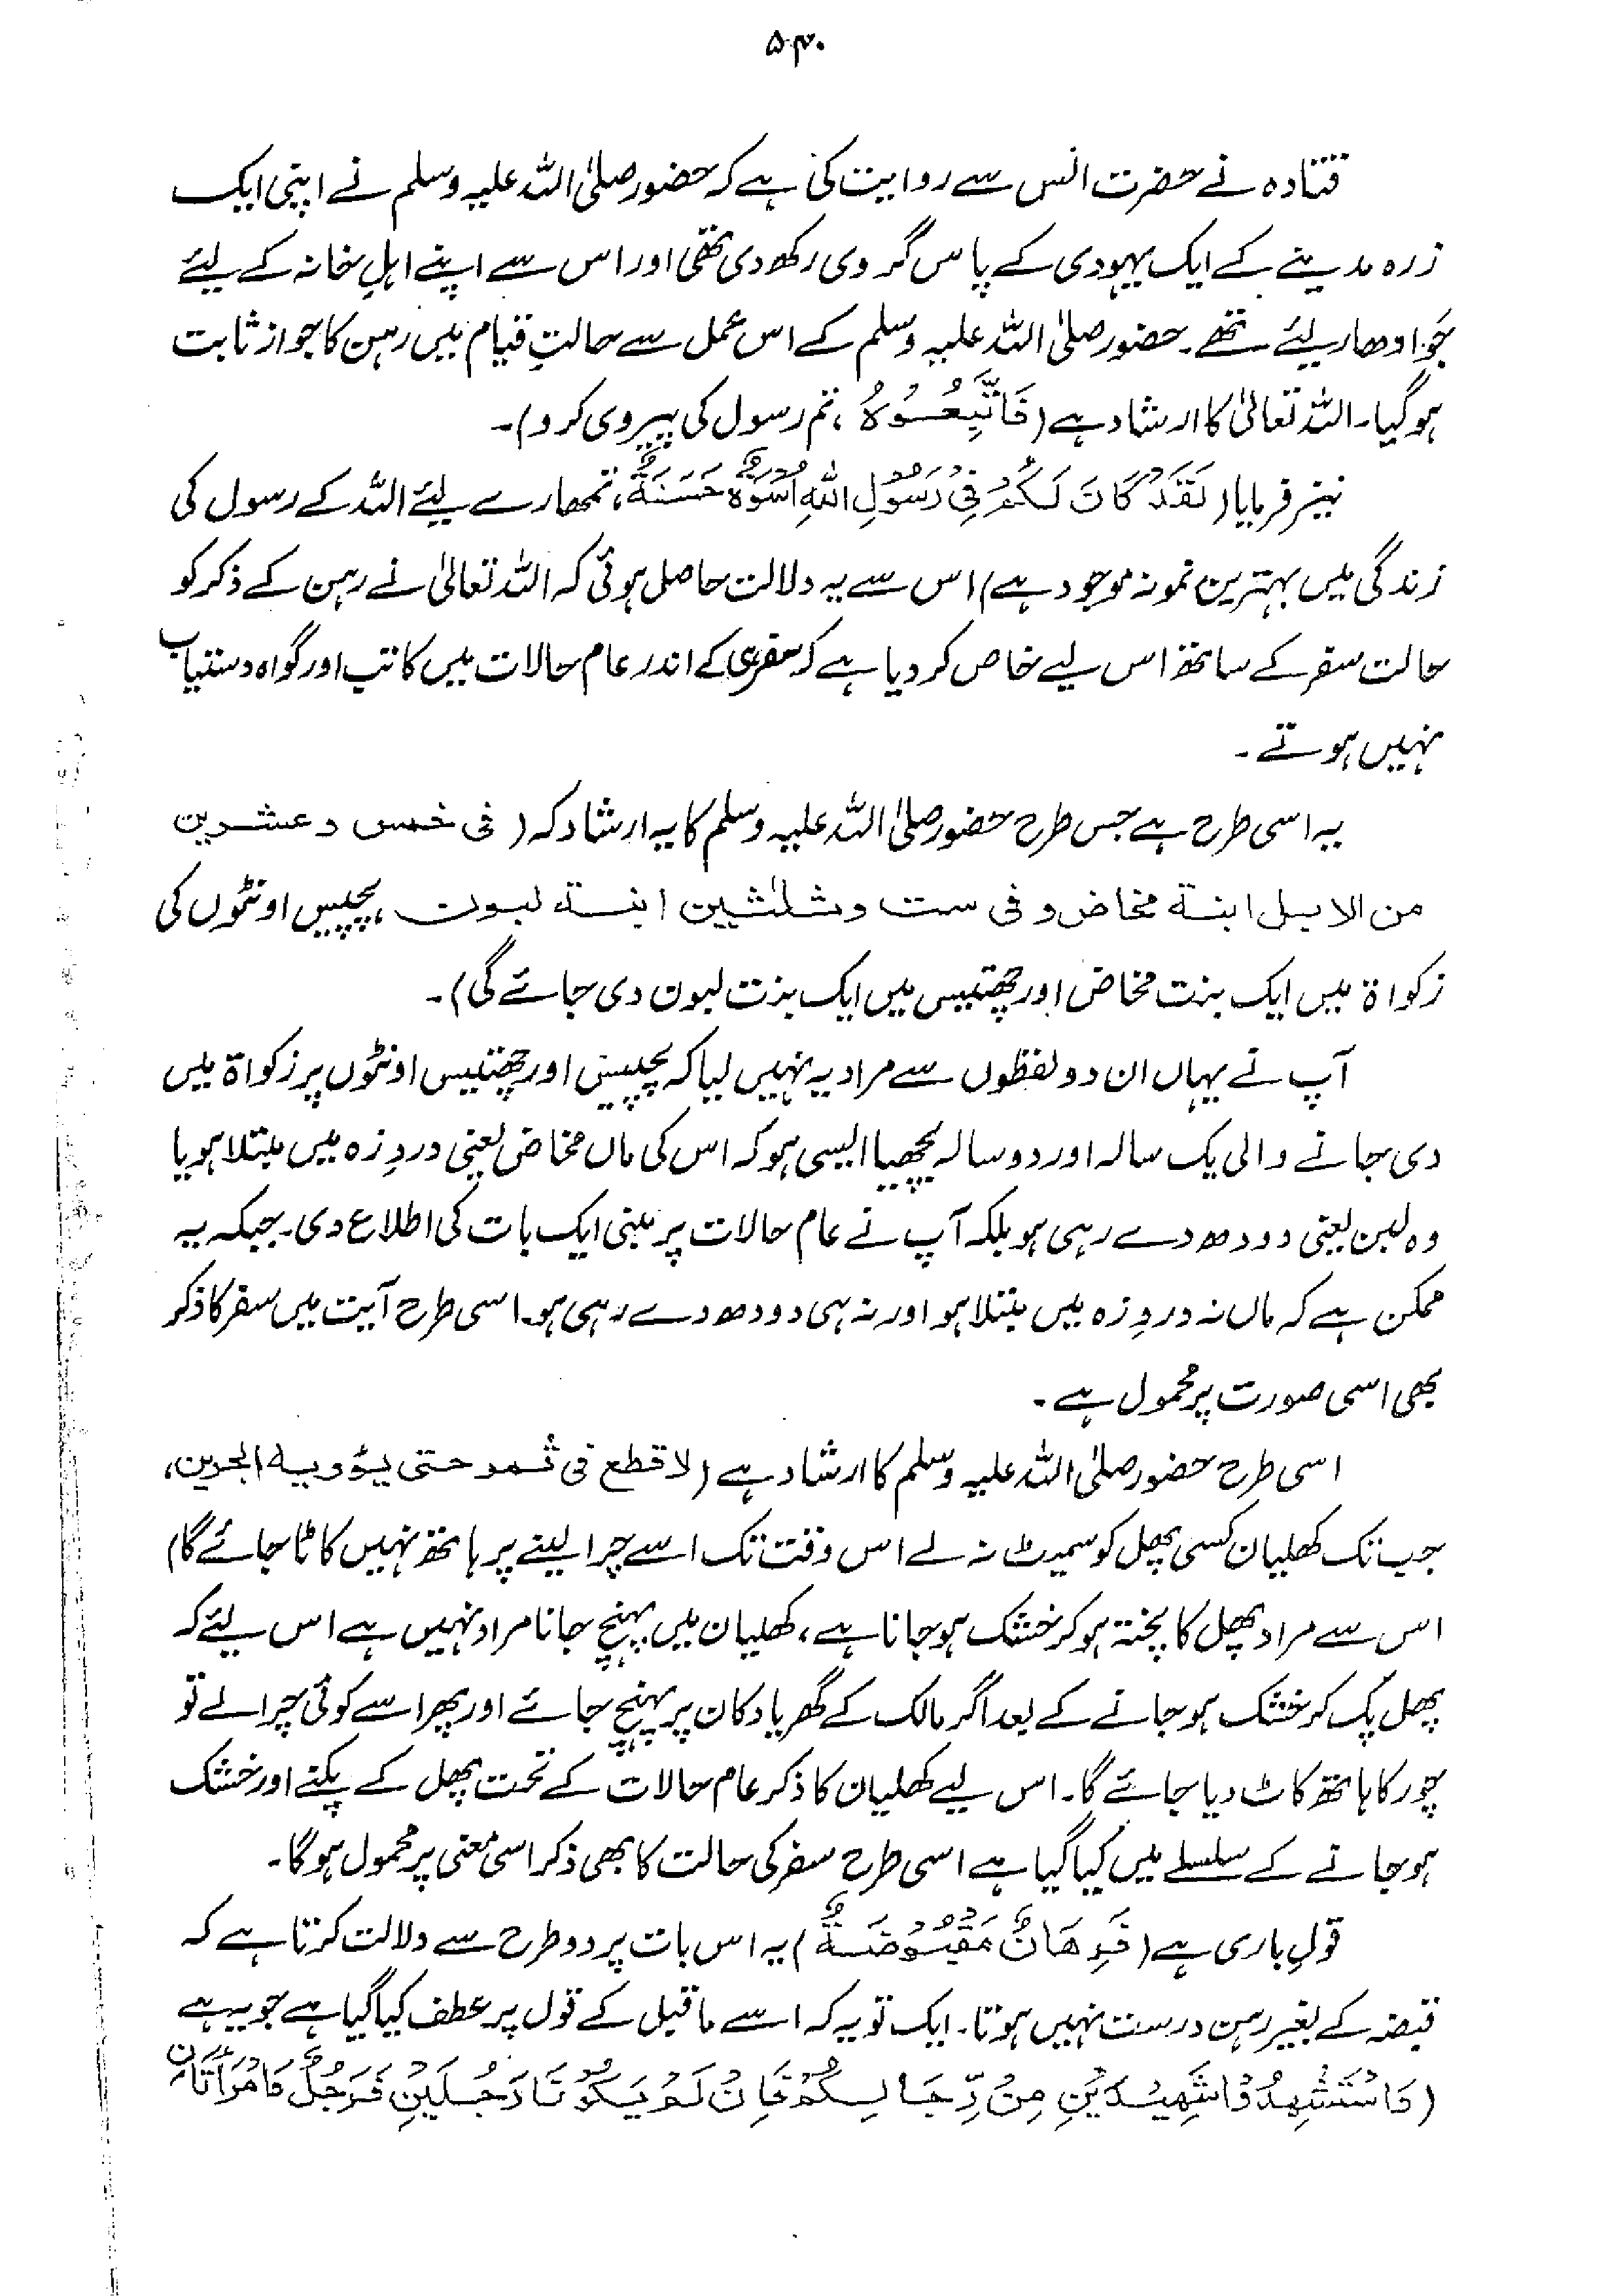 ۵۳۰
قتادہ نے حضرت انس سے روایت کی ہے کہ حضور صلی اللہ علیہ وسلم نے اپنی ایک
زرہ مدینے کے ایک یہودی کے پاس گروی رکھ دی تھی اور اس سے اپنے اہلِ خانہ کے لیئے
جَو ادھار لیئے تھے۔ حضور صلی اللہ علیہ وسلم کے اس عمل سے حالتِ قیام میں رہن کا جواز ثابت
ہوگیا۔ اللہ تعالیٰ کا ارشاد ہے (فَاتَّبِعُوْہُ، تم رسول کی پیروی کرو)۔
نیز فرمایا (لَقَدْ کَانَ لَکُمْ فِیْ رَسُوْلِ اللہِ اُسْوَۃٌ حَسَنَۃٌ، تمھارے لیئے اللہ کے رسول کی
زندگی میں بہترین نمونہ موجود ہے) اس سے یہ دلالت حاصل ہوئی کہ اللہ تعالیٰ نے رہن کے ذکر کو
حالت سفر کے ساتھ اس لیے خاص کر دیا ہے کہ سفر ہی کے اندر عام حالات میں کاتب اور گواہ دستیاب
نہیں ہوتے۔
یہ اسی طرح ہے جس طرح حضور صلی اللہ علیہ وسلم کا یہ ارشاد کہ (فی خمس وعشرین
من الابل ابنۃ مخاض و فی ست وثلثین ابنۃ لبون، پچیس اونٹوں کی
زکواۃ میں ایک بنت مخاض اور چھتیس میں ایک بنت لبون دی جائے گی)۔
آپ نے یہاں ان دو لفظوں سے مراد یہ نہیں لیا کہ پچیس اور چھتیس اونٹوں پر زکواۃ میں
دی جانے والی یک سالہ اور دو سالہ بچھیا ایسی ہو کہ اس کی ماں مخاض یعنی دردِ زہ میں مبتلا ہو یا
وہ لبن یعنی دودھ دے رہی ہو بلکہ آپ نے عام حالات پر مبنی ایک بات کی اطلاع دی۔ جبکہ یہ
ممکن ہے کہ ماں نہ دردِ زہ میں مبتلا ہو اور نہ ہی دودھ دے رہی ہو۔ اسی طرح آیت میں سفر کا ذکر
بھی اسی صورت پر محمول ہے۔
اسی طرح حضور صلی اللہ علیہ وسلم کا ارشاد ہے (لا قطع فی ثمر حتی یؤویہ الجرین،
جب تک کھلیان کسی پھل کو سمیٹ نہ لے اس وقت تک اسے چرا لینے پر ہاتھ نہیں کاٹا جائے گا)
اس سے مراد پھل کا پختہ ہو کر خشک ہو جانا ہے، کھلیان میں پہنچ جانا مراد نہیں ہے اس لیئے کہ
پھل پک کر خشک ہو جانے کے بعد اگر مالک کے گھر یا دکان پر پہنچ جائے اور پھر اسے کوئی چرا لے تو
چور کا ہاتھ کاٹ دیا جائے گا۔ اس لیے کھلیان کا ذکر عام حالات کے تحت پھل کے پکنے اور خشک
ہو جانے کے سلسلے میں کیا گیا ہے اسی طرح سفر کی حالت کا بھی ذکر اسی معنی پر محمول ہوگا۔
قولِ باری ہے (فَرِھَانٌ مَقْبُوْضَۃٌ) یہ اس بات پر دو طرح سے دلالت کرتا ہے کہ
قبضہ کے بغیر رہن درست نہیں ہوتا۔ ایک تو یہ کہ اسے ماقبل کے قول پر عطف کیا گیا ہے جو یہ ہے
(وَاسْتَشْھِدُوْا شَھِیْدَیْنِ مِنْ رِّجَالِکُمْ فَاِنْ لَّمْ یَکُوْنَا رَجُلَیْنِ فَرَجُلٌ وَّامْرَأَتَانِ